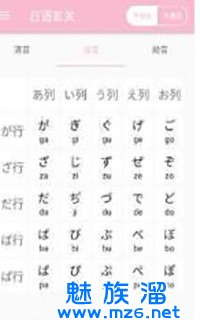 日语五关
清音 浊音 拗音
あ列 い列 う列 え列 お列
が行 が ぎ ぐ げ ご
ga gi gu ge go
ざ行 ざ じ ず ぜ ぞ
za zi zu ze zo
だ行 だ ぢ づ で ど
da ji du de do
ば行 ば び ぶ べ ぼ
ba bi bu be bo
ぱ行 ぱ ぴ ぷ ぺ ぽ
pa
魅族溜
www.mz6.net